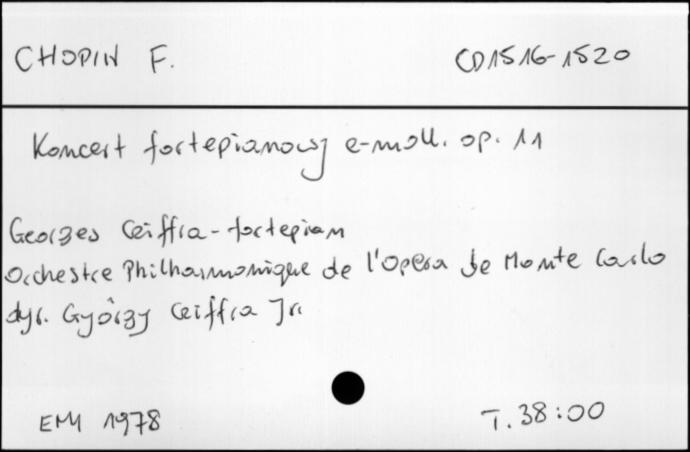 CHOPIN F. CD1516-1520
Koncert fortepianowy e-moll. op. 11
Georges Cziffra - fortepian
Orchestre Philharmonique de l'Opera de Monte Carlo
dyr. György Cziffra Jr.
EMI 1978 T. 38:00